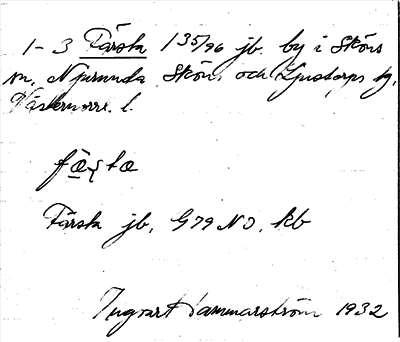 1-3 Färsta 135/96 jb. by i Sköns
sn, Njurunda Sköns och Ljustorps tg,
Västernorrl. l.
Färsta jb, G79 NO, kb
Ingvart Hammarström 1932